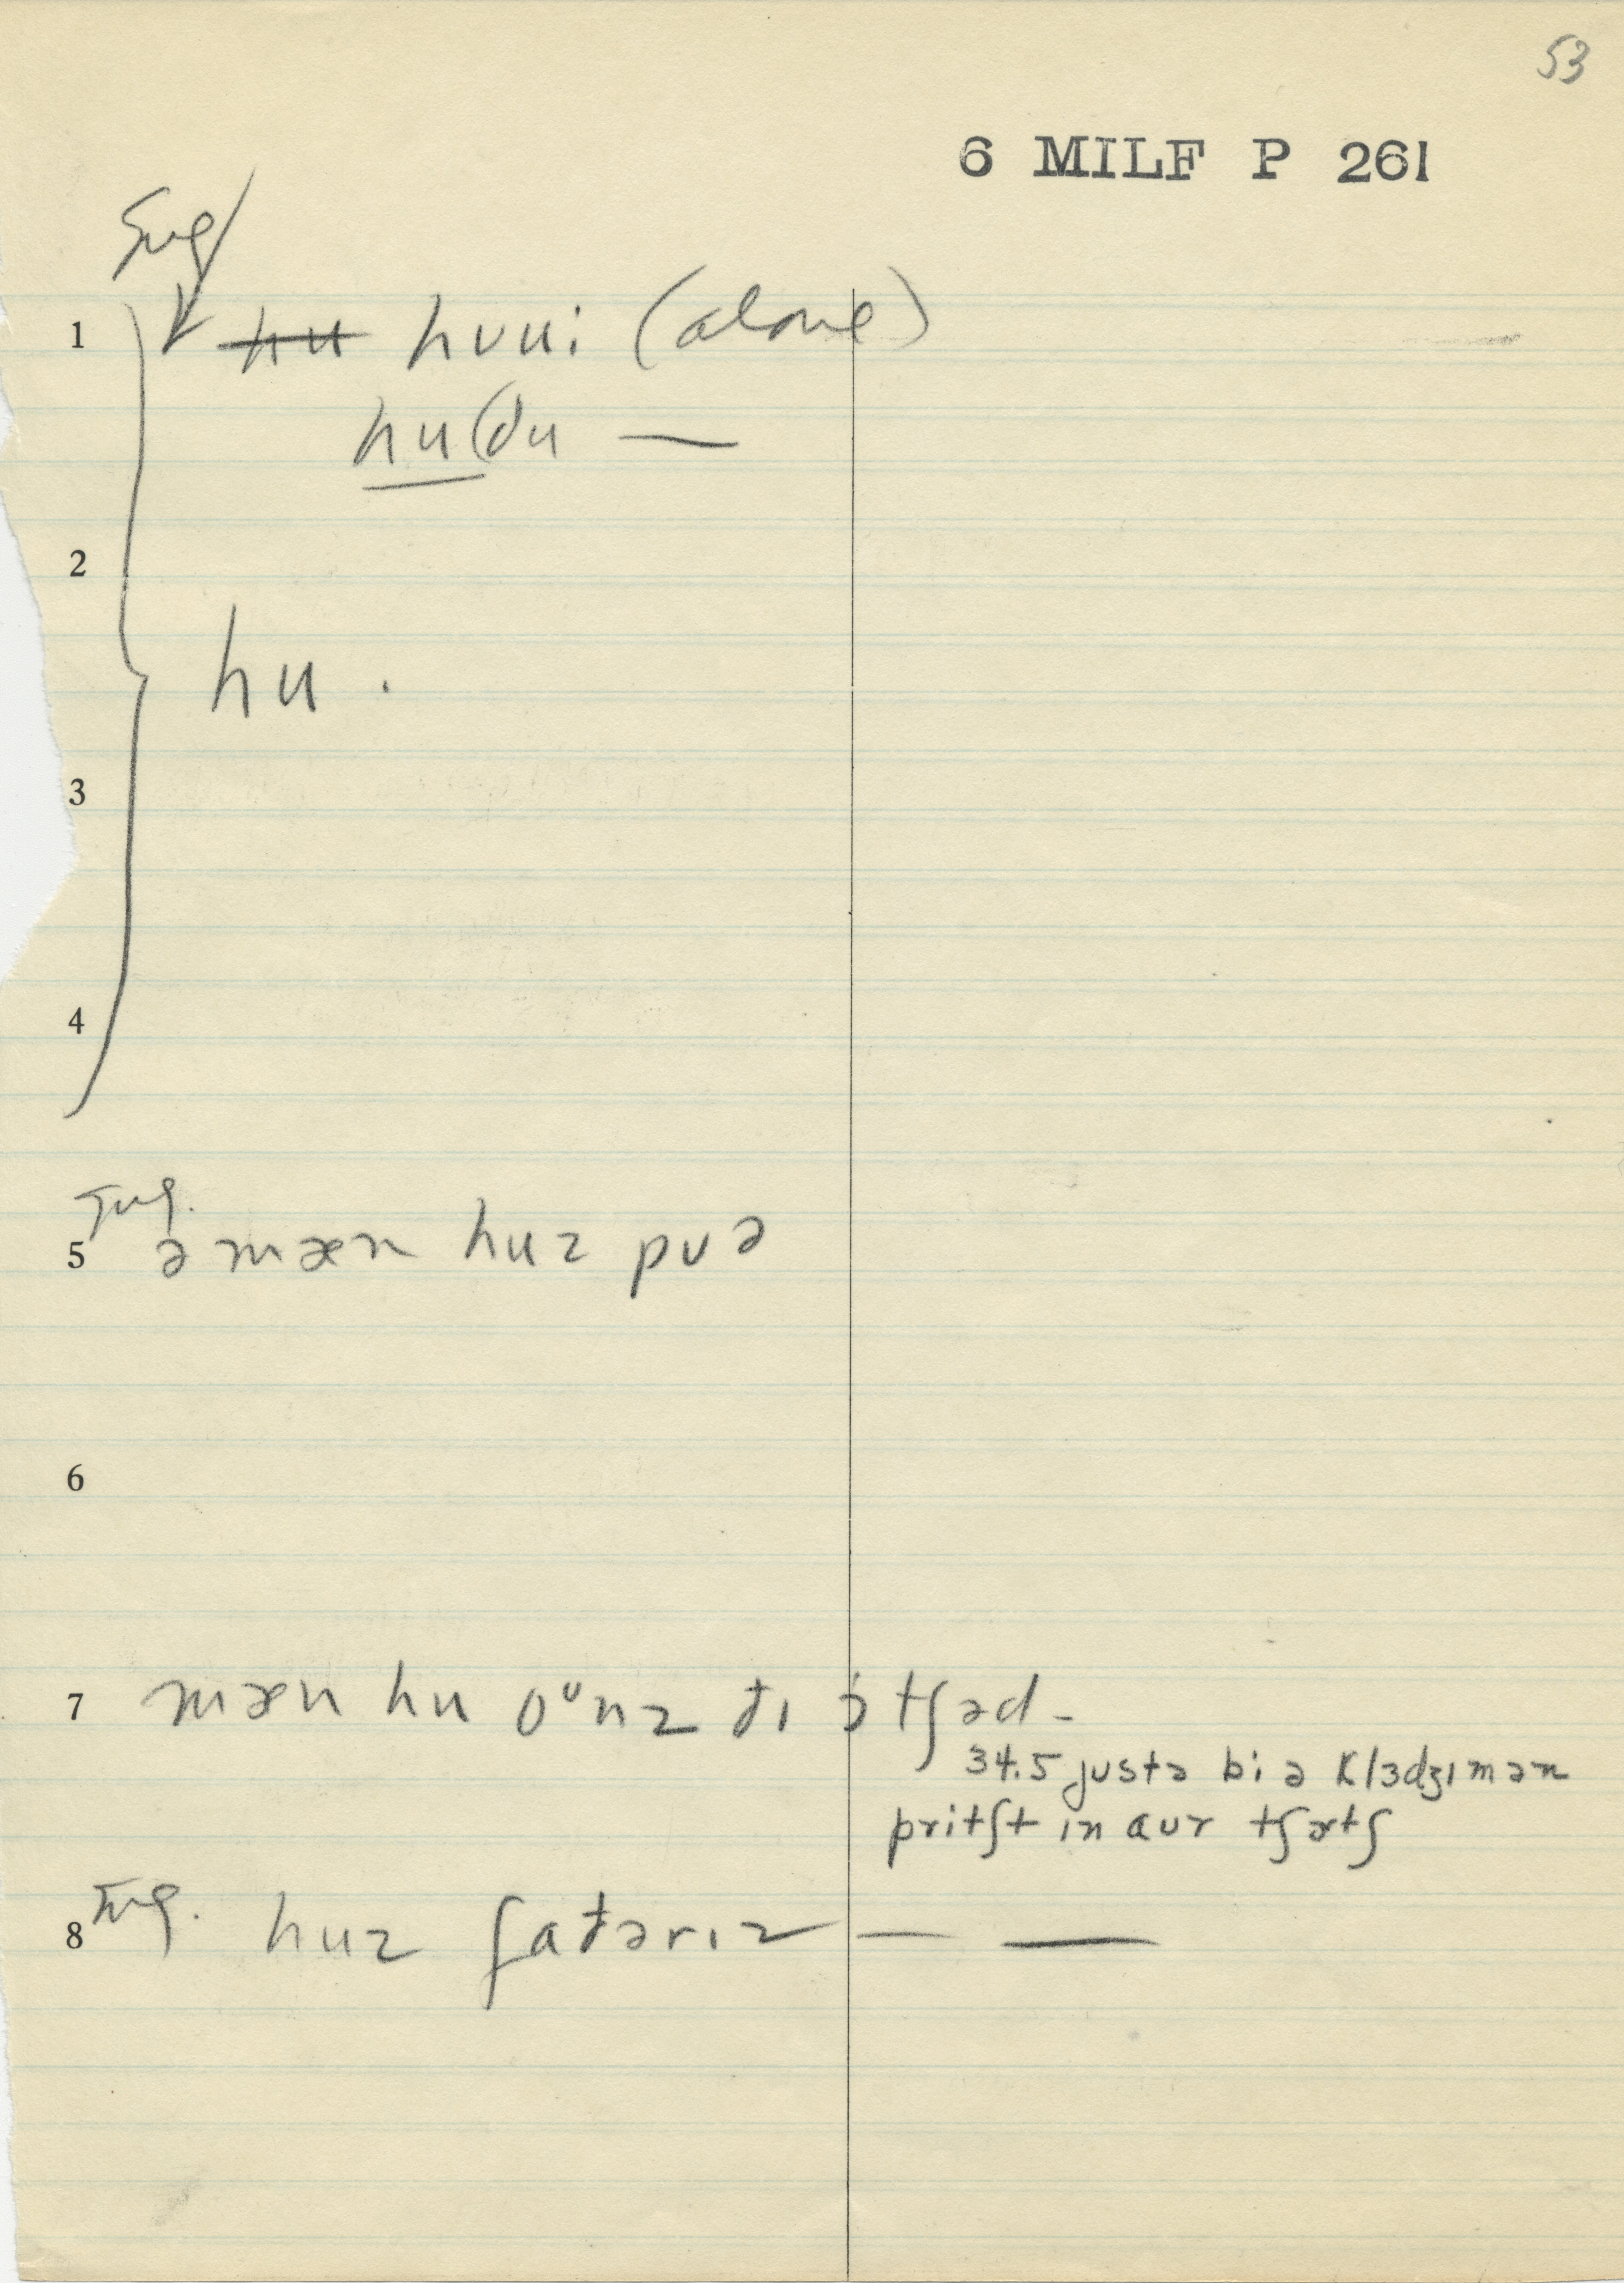 53
6 MILF P 261
Sug
1 hu huui (alone)
hu (du —
2
hu .
3
4
Sug.
5 ə mæn huz puə
6
7 mæn hu oᶸnz đɪ ɔtʃəd -
34.5 justə bi ə klɜdʒɪmən
pritʃt ɪn aur tʃɚtʃ
Sug.
8 huz fađərɪz — —